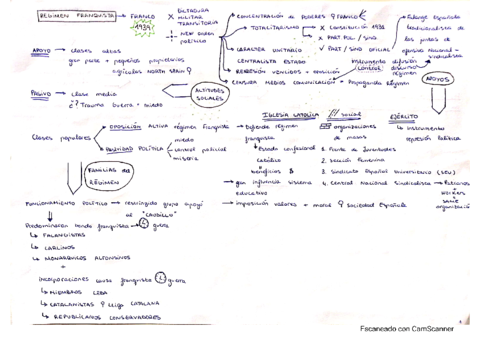 RÉGIMEN FRANQUISTA → FRANCO
1939
DICTADURA
MILITAR
TRANSITORIA
NEW ORDEN
POLÍTICO
CONCENTRACIÓN DE PODERES FRANCO
TOTALITARISMO
CONSTITUCIÓN 1931
PART POL / SIND
CARÁCTER UNITARIO
✓ PART / SIND OFICIAL
CENTRALISTA ESTADO
REPRESIÓN VENCIDOS + OPOSICIÓN
CENSURA MEDIOS COMUNICACIÓN + Propaganda Régimen
Falange española
tradicionalista de
las juntas de
ofensiva Nacional -
sindicalista
Instrumento difusión
control
régimen
APOYOS
APOYO → clases altas
gran parte + pequeños propietarios
agrícolas NORTH SPAIN
PASIVO → clase media
Trauma Guerra + miedo
ACTITUDES
SOCIALES
Clases populares
OPOSICIÓN ACTIVA régimen franquista
PASIVIDAD POLÍTICA
miedo
control policial
miseria
FAMILIAS DEL
RÉGIMEN
IGLESIA CATÓLICA
→ Defiende régimen
franquista
Estado confesional
católico
beneficios
→ gran influencia sistema
educativo
→ imposición valores + moral Sociedad Española
social
organizaciones
de masas
1. Frente de Juventudes
2. Sección femenina
3. Sindicato Español Universitario (SEU)
4. Central Nacional Sindicalista
EJÉRCITO
↳ instrumento
represión política
workers
same
organización
Funcionamiento POLÍTICO → restringido grupo apoyó
al "CAUDILLO"
Predominaron bando franquista guerra
↳ FALANGISTAS
↳ CARLINOS
↳ MONARQUICOS ALFONSINOS
+
incorporaciones causa franquista guerra
↳ MIEMBROS CEDA
↳ CATALANISTAS lliga CATALANA
↳ REPUBLICANOS CONSERVADORES
Escaneado con CamScanner